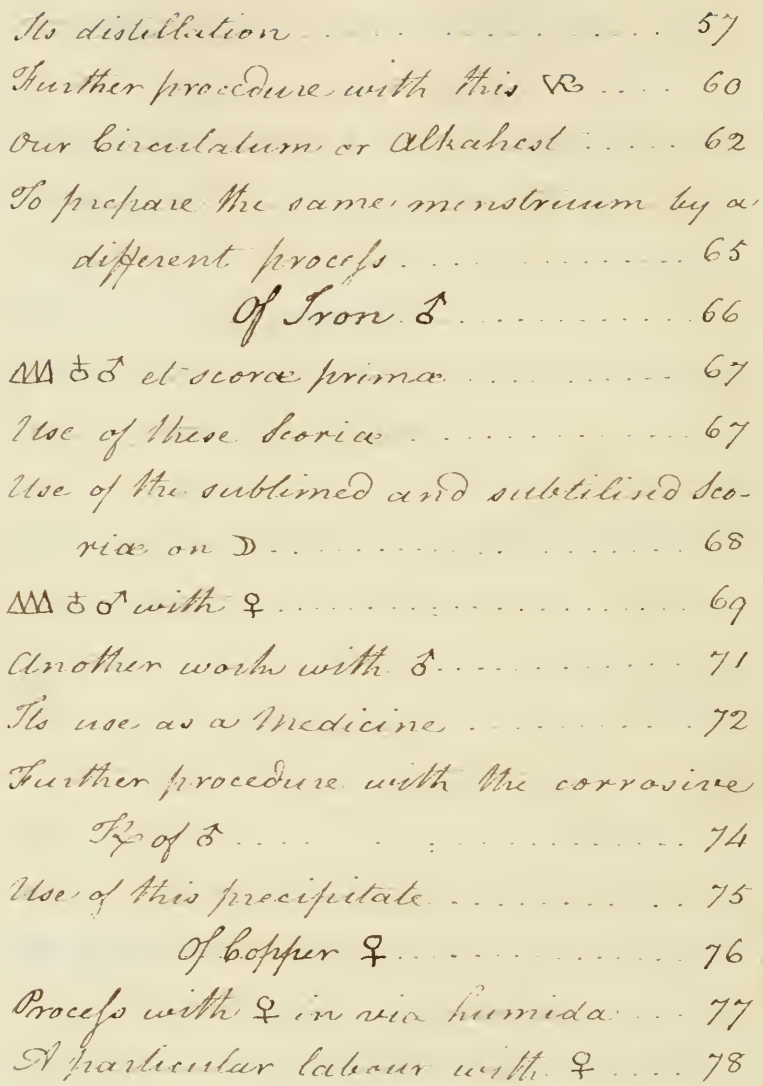 Its distillation . . . . . . . . . 57
Further procedure with this 🜇 .... 60
Our Circulatum or Alkahest ..... 62
To prepare the same menstruum by a
different proceſs ............... 65
Of Iron ♂ ............ 66
🜂🜂🜂 ♁ ♂ et scoræ primæ ........... 67
Use of these Scoriæ ............... 67
Use of the sublimed and subtilised Sco-
riæ on ☽ ................. 68
🜂🜂🜂 ♁ ♂ with ♀ .................... 69
Another work with ♂ ............ 71
Its use as a Medicine ........... 72
Further procedure with the corrosive
of ♂ ............. 74
Use of this precipitate ........... 75
Of Copper ♀ .............. 76
Proceſs with ♀ in via humida .... 77
A particular labour with ♀ .... 78